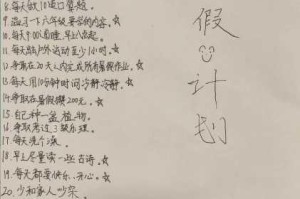 8.每天做10道口算题。
9.温习一下六年级要学的内容。
10.每天9:00睡,早上8点起。
11.每天户外活动至少1小时。
12.争取在20天之内完成所有暑假作业。
13.每天用10分钟时间冷静冷静。
14.争取在暑假攒200元。
15.自己种一盆植物。
16.争取考过3级乐理。
17.每天洗个澡。
18.早上尽量读一些古诗。
19.每天都要快乐、开心。
20.少和家人吵架。
假
计
划